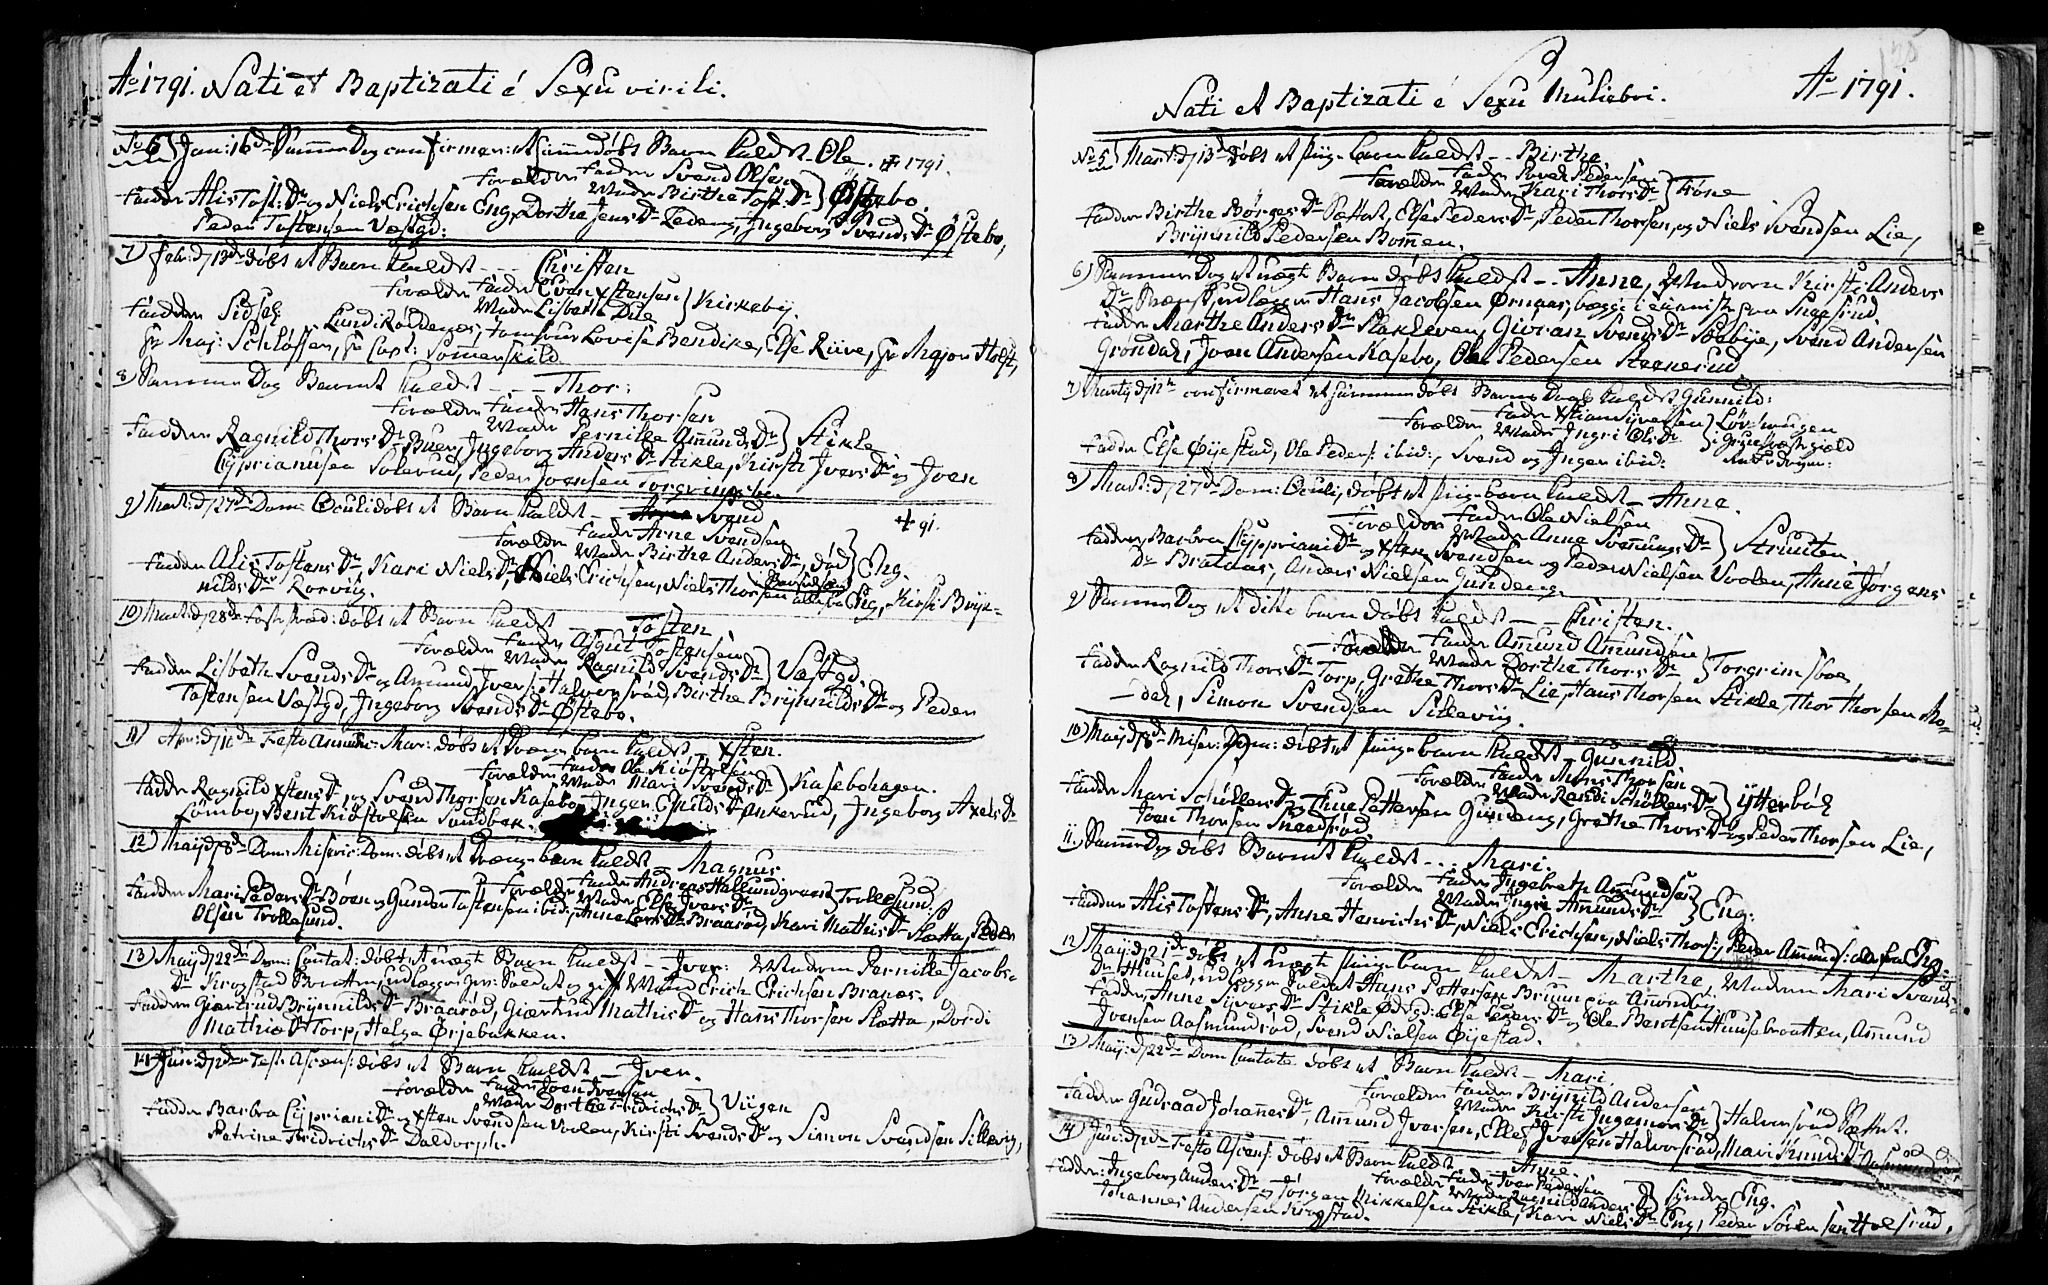 Ao 1791. Nati et Baptizati é Sexu virili.
No 6) Jan: 16 d. Samme Dag confirmen: et hiemmedøbt Barn kaldet Ole. † 1791.
Forældre Fader Svend Olsen
Moder Birthe Tost. Dr } Østebo.
Fadder Alis Tost: Dr og Niels Erichsen Eng, Dorthe Jens Dr Ledeng, Ingeborg Svends Dr Østebo,
Peder Tostensen Vestgd:
7) Febr: d. 13 d. døbt et Barn kaldet - - Christen
Forældre Fader Even Xstensen
Moder Lisbeth Dile } Kirkebÿ.
Faddere Sidsel Lund Røddenæs, Jomfrue Lovise Bendike, Else Riive, Hr Major Holst,
Hr Maj: Schlossen, Hr Capt: Sommerskild
8) Samme Dag Barnet kaldet - - - Thor:
Forældre Fader Hans Thorsen
Moder Pernille Amunds Dr } Stikle
Faddere Ragnild Thors Dr Buer, Ingeborg Anders Dr Stikle, Kirsti Ivers Dr og Joen
Cyprianusen Solerud, Peder Joensen Torgrimsboe
9) Mart: d. 27 d. Dom: Oculi døbt et Barn kaldet - Svend † 91.
Forældre Fader Arne Svendsen
Moder Birthe Anders Dr, død } Eng.
Fadder Alis Tostens Dr, Kari Niels Dr Niels Erichsen, Niels Thorsen alle fra Eng, Kirsti Brÿn-
nilds Dr Rørviig.
10) Mart: d. 28 d. døbt et Barn kaldet - Tosten
Forældre Fader Asgut Tostensen
Moder Ragnild Svends Dr } Vestgd.
Fadder Lisbeth Svends Dr og Amund Ivers: Halvorsrød, Birthe Brÿnnilds Dr og Peder
Tostensen Vestgd, Ingeborg Svends Dr Østebo.
11) Apr: d. Festo Annunc: Mar: døbt et Drænge barn kaldet - Xsten.
Forældre Fader Ole Kiøstelsen
Moder Mari Svends Dr } Kasebohagen.
Fadder Ragnild Xstens Dr og Svend Thorsen Kasebo, Inger Eskilds Dr Ankerud, Ingeborg Axels Dr
Lømbo, Bent Kiøstelsen Sundbek.
12) Maij d. 8 d. Dom: Miseric: Dom: døbt et Drænge barn kaldet - Magnus
Forældre Fader Andreas Hallundgraest
Moder Else Ivers Dr } Trollesund.
Fadder Mari Peders Dr Boen og Gunder Tostensen ibid:, Anne Lars Dr Braarød, Kari Mathis Dr Sletta, Peder
Olsen Trollesund.
13) Maij d. 22 d. Dom: Cantat: døbt et uægt Barn kaldet - Iver: Moderen Pernille Jacobs
Dr Krogstad Barnefader udlagger gev: Soldat og gift Mand Erich Erichsen Brænæs.
Fadder Giærtrud Brÿnnilds Dr Braarød, Giærtrud Mathis Dr og Hans Thorsen Sletta, Dordi
Mathiæ Dr Torp, Helge Ørjebakken.
14) Jun: d. 2 d. Fest: Ascens: døbt et Barn kaldet - Iver.
Forældre Fader Joen Iversen
Moder Dorthe Fridrichs Dr } Viigen
Fadder Barbra Cÿpriani Dr og Xsten Svendsen Voolen, Kirsti Svends Dr og Simon Svendsen Sillevig,
Petrine Fridrichs Dr Daldorph.
175
Nati et Baptizati é Sexu Muliebri. Ao 1791.
No 5) Mart: d. 13 d. døbt et piige barn kaldet - - Birthe
Forældre Fader Povel Pedersen
Moder Kari Thors Dr } Tøne
Fadder Birthe Børges Dr Sætteret, Else Peders Dr, Peder Thorsen, og Niels Svendsen Lie,
Brÿnnild Pedersen Bommen.
6) Samme Dag et uægt Barn døbt kaldet - - Anne, Moderen Kirsti Anders
Dr Barnefader udlægger Hans Jacobsen Ørnaas, begge i tieniste paa Snesrud
Fadder Marthe Anders Dr Slakleven, Giøran Svends Dr Bøebÿe, Svend Andersen
Grøndal, Joen Andersen Kasebo, Ole Pedersen Steenesrud.
7) Martij d. confirmeret et hiemmedøbt Barns Daab kaldet Gunnild:
Forældre Fader Xstian Sÿversen
Moder Ingri Ols Dr } Løvhougen
Fadder Else Øÿestad, Ole Peders: ibid:, Svend og Inger ibid:
8) Mart: d. 27 d. Dom: Oculi, døbt et piige barn kaldet - Anne.
Forældre Fader Ole Nielsen
Moder Anne Svennungs Dr } Struiten
Fadder Barbra Cÿppriani Dr og Xsten Svendsen og Peder Nielsen Voolen, Anne Jørgens
Dr Braatas, Anders Nielsen Gundeng.
9) Samme Dag et ditto barn døbt kaldet - - Christen.
Forældre Fader Amund Amundsen
Moder Dorthe Thors Dr } Torgrimsboe
Fadder Ragnild Thors Dr Torp, Grethe Thors Dr Lie, Hans Thorsen Stikle, Thor Thorsen Mo-
dal, Simon Svendsen Sillevjig.
10) Maij d. 8 d. Miser: Dom: døbt et piige barn kaldet - Gunnild
Forældre Fader Arne Thorsen
Moder Randi Schøllers Dr } Ÿtterbøl
Fadder Mari Schøllers Dr og Thue Pettersen Gundeng, Grethe Thors Dr og Peder Thorsen Lie,
Joen Thorsen Sneesrød.
11.) Samme Dag døbt Barnet kaldet - - - Mari.
Forældre Fader Ingebreth Amundsen
Moder Inger Amunds Dr } Eng.
Fadder Alis Tostens Dr, Anne Henrichs Dr, Niels Erichsen, Niels Thors:, Peder Amunds: alle fra Eng.
12) Maij: d. 21 d. døbt et uægt piige barn kaldet - Marthe, Moderen Mari Svends
Dr Huuset, udlægger Soldat Hans Pettersen Bruun paa Amündrøe
Fadder, Anne Sÿvers Dr Stikle Ødegd: Else Peders Dr og Ole Bentsen Huusebraatten, Amund
Joensen Aasmundrød, Svend Nielsen Øÿestad.
13) Maij: d. 22 d. Dom: Cantate døbt et Barn kaldet - Mari.
Forældre Fader Brÿnnild Andersen
Moder Kirsti Ingemors Dr } Halvorsrød Sætteret.
Fadder Gudraad Johannes Dr, Amund Iversen, Ellef Iversen Halvorsrød, Mari Knuds Dr Aasmundrød
14) Junij: d. 2 d. Festo Ascens: døbt et Barn kaldet - Anne.
Forældre Fader Iver Pedersen
Moder Ragnild Anders Dr } Søndre Eng.
Fadder: Ingeborg Anders Dr og Jørgen Mikkelsen Stikle, Kari Niels Dr Eng, Peder Sørensen Holsrud,
Johannes Andersen Krogstad.